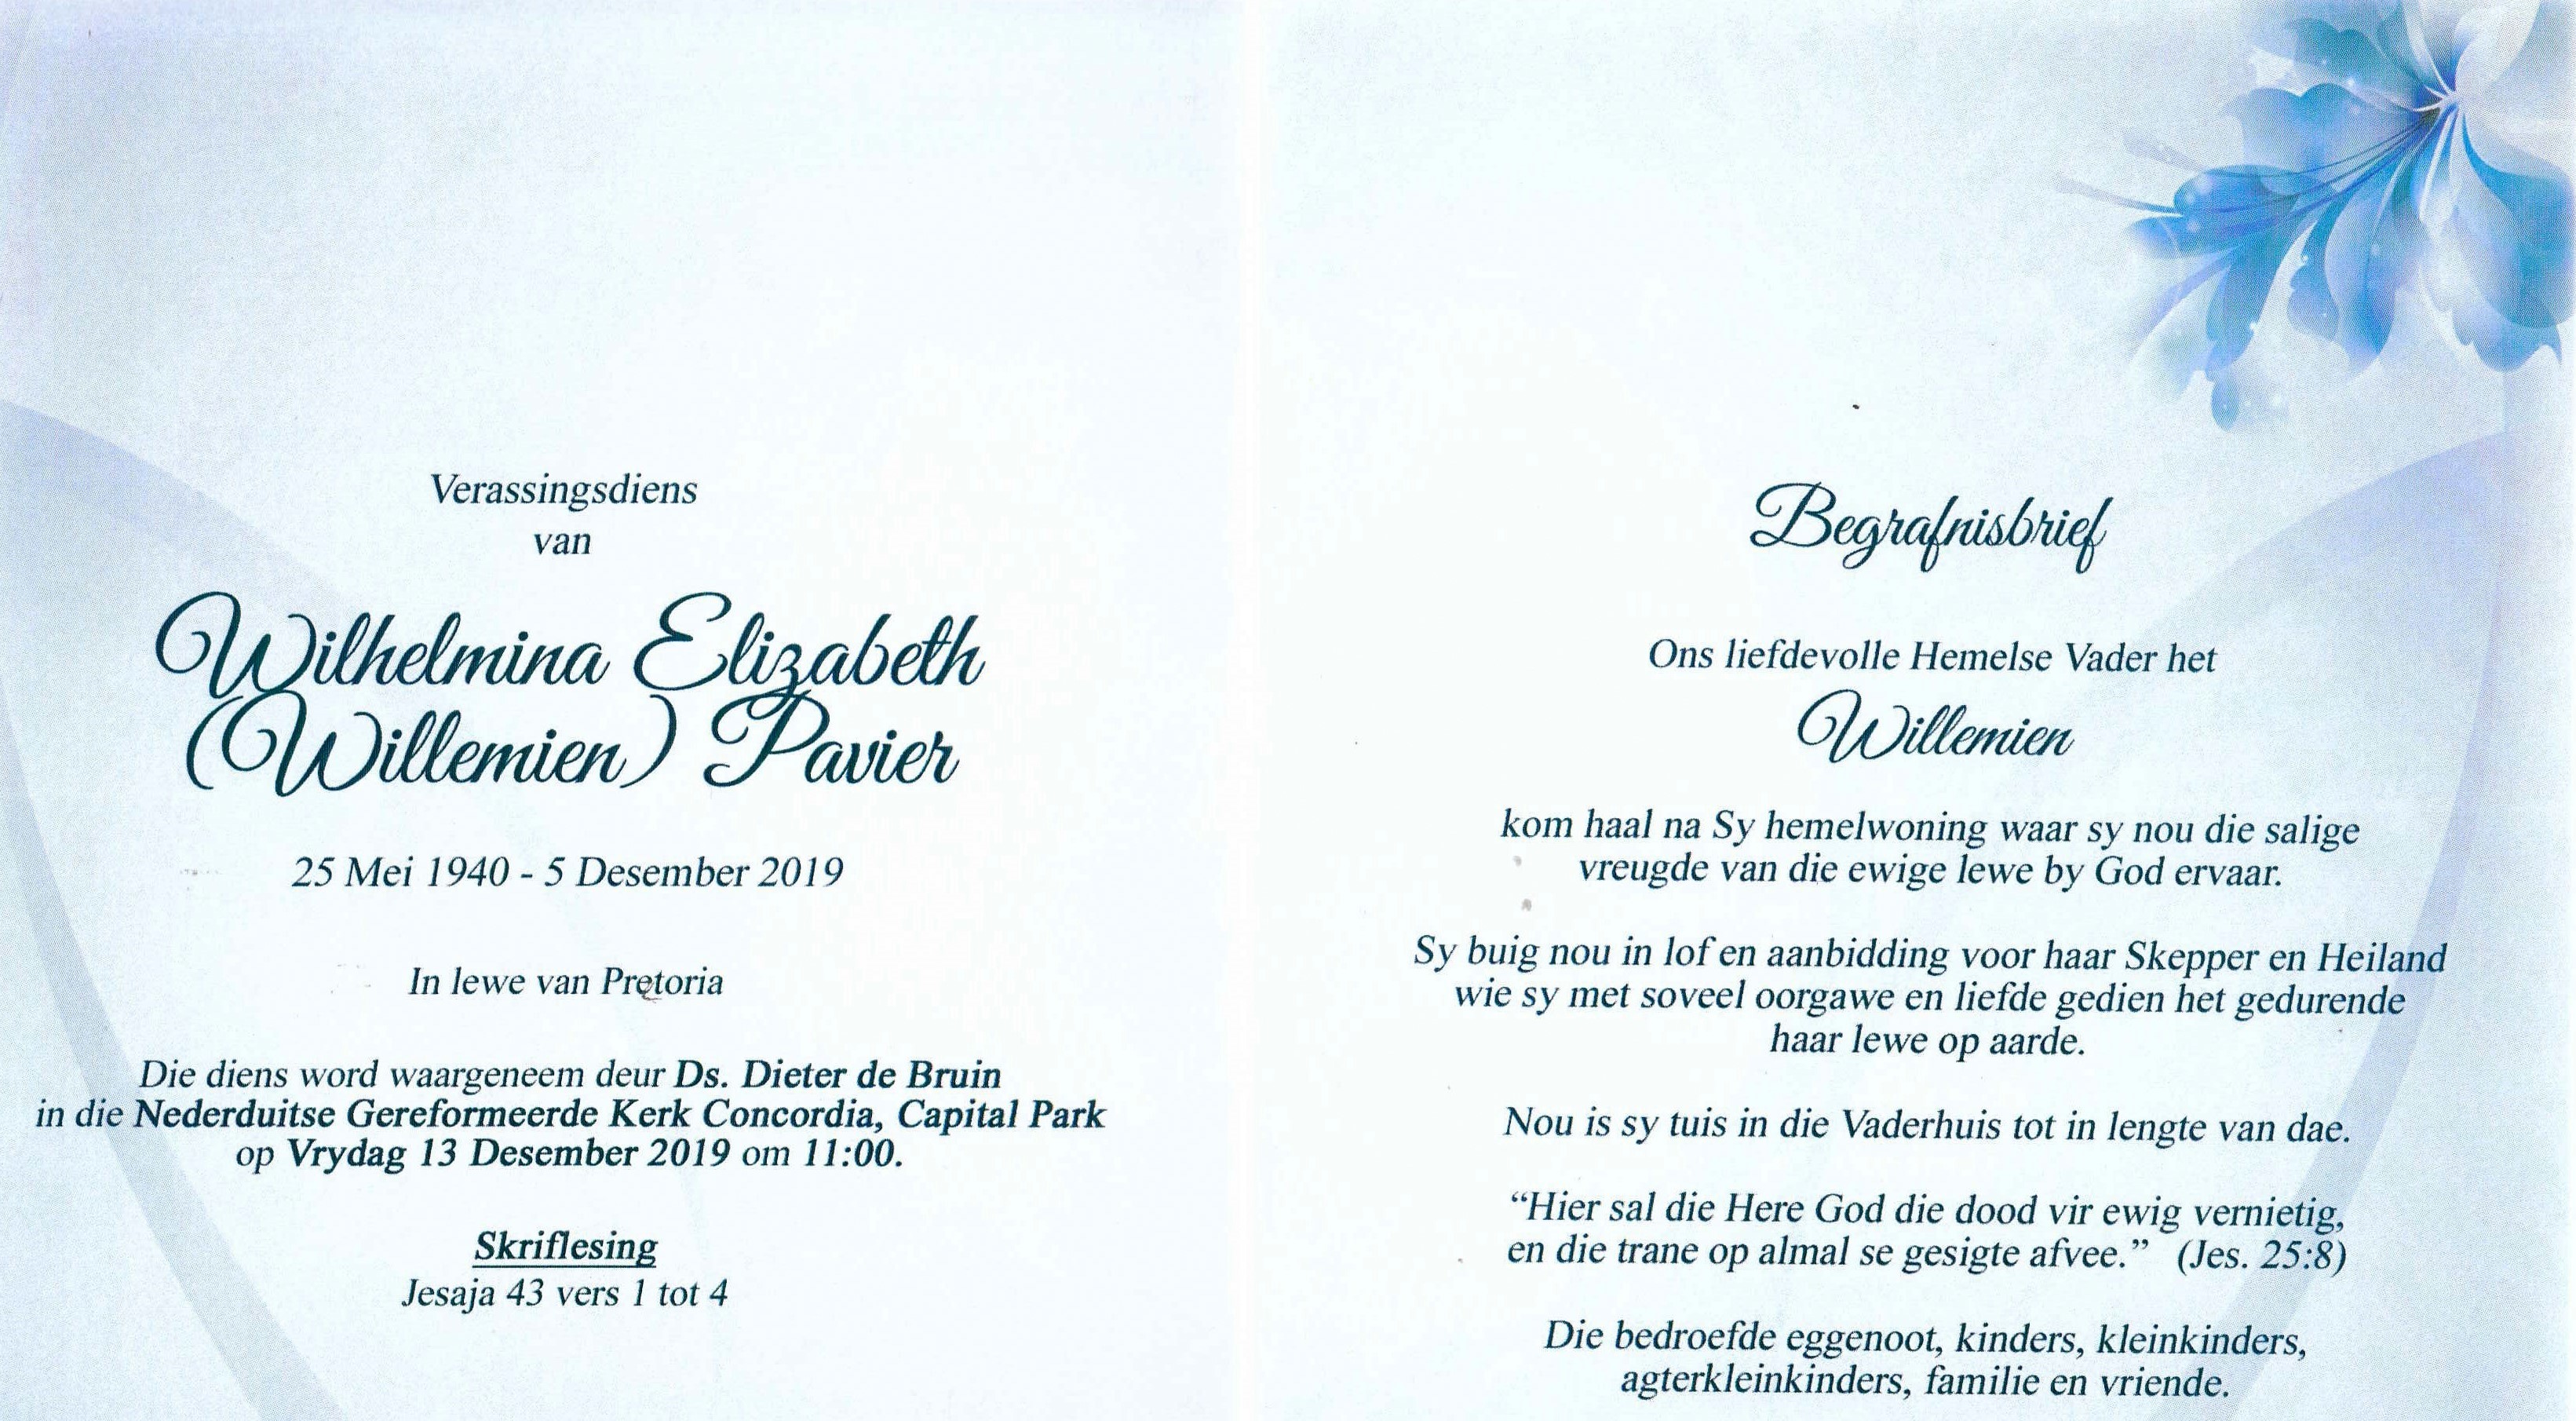 Verassingsdiens
van
Wilhelmina Elizabeth
(Willemien) Pavier
25 Mei 1940 - 5 Desember 2019
In lewe van Pretoria
Die diens word waargeneem deur Ds. Dieter de Bruin
in die Nederduitse Gereformeerde Kerk Concordia, Capital Park
op Vrydag 13 Desember 2019 om 11:00.
Skriflesing
Jesaja 43 vers 1 tot 4
Begrafnisbrief
Ons liefdevolle Hemelse Vader het
Willemien
kom haal na Sy hemelwoning waar sy nou die salige
vreugde van die ewige lewe by God ervaar.
Sy buig nou in lof en aanbidding voor haar Skepper en Heiland
wie sy met soveel oorgawe en liefde gedien het gedurende
haar lewe op aarde.
Nou is sy tuis in die Vaderhuis tot in lengte van dae.
“Hier sal die Here God die dood vir ewig vernietig,
en die trane op almal se gesigte afvee.” (Jes. 25:8)
Die bedroefde eggenoot, kinders, kleinkinders,
agterkleinkinders, familie en vriende.